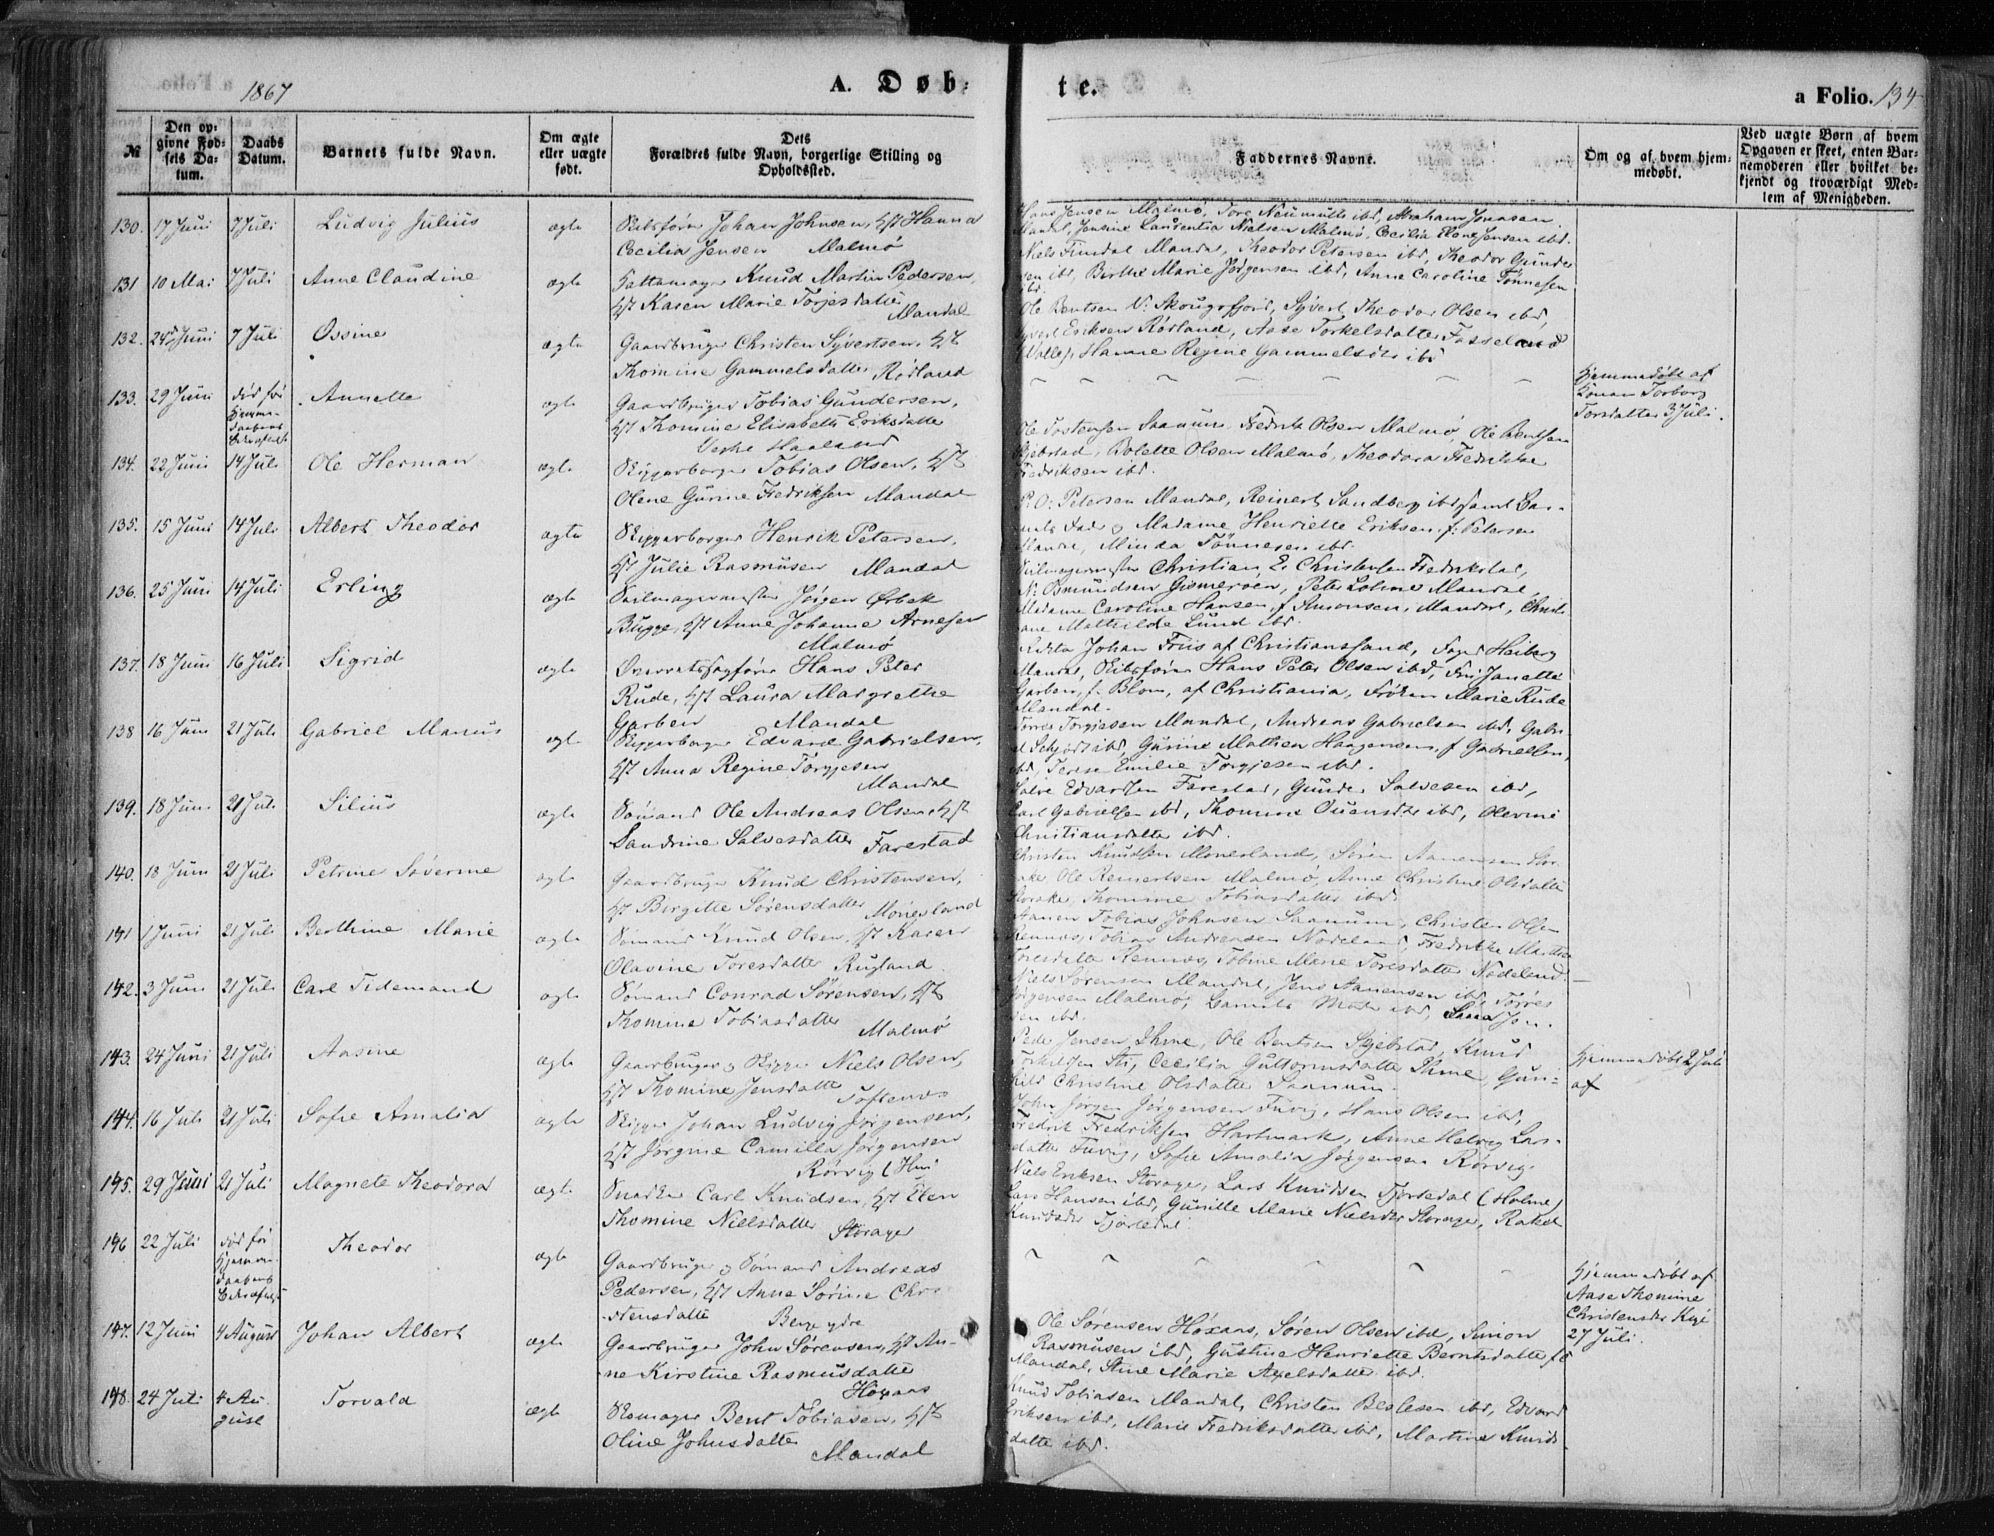 1867
A. Døb-
te.
a Folio. 134
№
Den op-
givne Fød-
sels Da-
tum.
Daabs
Datum.
Barnets fulde Navn.
Om ægte
eller uægte
født.
Dets
Forældres fulde Navn, borgerlige Stilling og
Opholdssted.
Faddernes Navne.
Om og af hvem hjem-
medøbt.
Ved uægte Børn af hvem
Opgaven er skeet, enten Bar-
nemoderen eller hvilket be-
kjendt og troværdigt Med-
lem af Menigheden.
130. 17 Juni 7 Juli Ludvig Julius ægte Skibsfører Johan Johnsen, Hst Hanna
Cecilia Jensen Malmø
Hans Jensen Malmø, Tore ibd, Abraham Jonassen
Mandal, Jensine Laurentia Nielsen Malmø, Cecilia Elene Jensen ibd.
131 10 Mai 7 Juli Anne Claudine ægte Hattemager Knud Martin Pedersen,
Hst Karen Marie Torjesdatter
Mandal
Niels Mandal, Theodor Petersen ibd, Theodor Gunder
sen ibd, Berthe Marie Jørgensen ibd, Anne Caroline Tønnesen
ibd.
132. 24 Juni 7 Juli Ossine ægte Gaardbruger Christen Syvertsen, Hst
Thomine Gammelsdatter Rødland
Ole Bentsen V. Skougsfjord, Syvert Theodor Olsen ibd,
Syvert Eriksen Rødland, Aase Torkelsdatter
Hanne Regine Gammelsdtr ibd
133. 29 Juni død før
Hjemme-
daabens
Bekræftelse
Annette ægte Gaardbruger Tobias Gundersen,
Hst Thomine Elisabeth Eriksdatter
Haaland
Hjemmedøbt af
Konen Torborg
Torsdatter 3 Juli.
134. 22 Juni 14 Juli Ole Herman ægte Skipperborger Tobias Olsen, Hst
Olene Gurine Fredriksen Mandal
Ole Tostensen Saanum, Fredrik Olsen Malmø, Ole Bentsen
Skjebstad, Bolette Olsen Malmø, Theodora Fredrikke
Fredriksen ibd.
135. 15 Juni 14 Juli Albert Theodor ægte Skipperborger Henrik Petersen,
Hst Julie Rasmusen Mandal
P. O. Petersen Mandal, Reinert Sandberg ibd samt Bar-
nets Fader og Madame Henriette Eriksen f. Petersen
Mandal, Minda Tønnesen ibd.
136. 25 Juni 14 Juli Erling ægte Seilmagermester Jørgen Ørbek
Bugge, Hst Anne Johanne Arnesen
Malmø
Seilmagermester Christian E. Christensen Fredrikstad,
N. Osmundsen Gismerøen, Peter Mandal,
Madame Caroline Hansen, f. Mandal, Christi-
ane Mathilde Lund ibd.
137. 18 Juni 16 Juli Sigrid ægte Overretssagfører Hans Peter
Rude, Hst Laura Margrethe
Garben Mandal
Johan Friis af Christianssand, Foged Heiberg
Mandal, Skibsfører Hans Peter Olsen ibd, Fru Janette
Garben, f. Blom, af Christiania, Frøken Marie Rude
Mandal.
138 16 Juni 21 Juli Gabriel Marius ægte Skipperborger Edvard Gabrielsen,
Hst Anna Regine Torgjesen
Mandal
Torres Torgjesen Mandal, Andreas Gabrielsen ibd, Gabri-
el ibd, Gurine Mathea Haagensen f. Gabrielsen,
ibd, Terese Emilie Torgjesen ibd.
139. 18 Juni 21 Juli Silius ægte Sømand Ole Andreas Olsen Hst
Sandrine Salvesdatter Farestad
Salve Edvardsen Farestad, Gunder Salvesen ibd,
Carl Gabrielsen ibd, Thomine ibd, Olevine
Christiansdatter ibd.
140. 18 Juni 21 Juli Petrine Søverine ægte Gaardbruger Knud Christensen,
Hst Birgitte Sørensdatter Mønesland
Christen Knudsen Mønesland, Søren Aanensen
Ole Reinertsen Malmø, Anne Christine Olsdatter
Thomine Tobiasdatter ibd.
141 1 Juni 21 Juli Berthine Marie ægte Sømand Knud Olsen, Hst Karen
Olavine Toresdatter Rugland
Aanen Tobias Johnsen Saanum, Christen Olsen
Rennos, Tobias Andreasen Nodeland, Fredrikke Marthea
Toresdatter Rennos, Tobine Marie Toresdatter Nodeland
142. 3 Juni 21 Juli Carl Tidemand ægte Sømand Conrad Sørensen, Hst
Thomine Tobiasdatter Malmø
Niels Sørensen Mandal, Jens Aanensen ibd, Torres
Jørgensen Malmø, Barnets Moder ibd, Jen-
sen ibd.
143. 24 Juni 21 Juli Aasine ægte Gaardbruger og Skipper Niels Olsen,
Hst Thomine Jensdatter
Toftenes
Peder Jensen Ihme, Ole Bentsen Skjebstad, Knud
Torkildsen Cecilia Guttormsdatter Ihme, Gun-
hild Christine Olsdatter Saanum.
Hjemmedøbt 2 Juli
af
144. 16 Juli 21 Juli Sofie Amalia ægte Skipper Johan Ludvig Jørgensen,
Hst Jørgine Camilla Jørgensen
Rørvig
John Jørgen Jørgensen Fuvig, Hans Olsen ibd,
Fredrik Fredriksen Hartmark, Anne Helvig Lars-
datter Fuvig, Sofie Amalia Jørgensen Rørvig.
145. 29 Juni 21 Juli Magnete Theodora ægte Snedker Carl Knudsen, Hst Elen
Thomine Nielsdatter Storager
Niels Eriksen Storager, Lars Knudsen Fjortedal (Holme)
Lars Hansen ibd, Gunille Marie Nielsdtr Storager, Rakel
Knudsdtr Fjortedal
146 22 Juli død før
Hjemme-
daabens
Bekræftelse
Theodor ægte Gaardbruger og Sømand Andreas
Pedersen, Hst Anne Sørine Chri-
stensdatter Berge ydre
Hjemmedøbt af
Aase Thomine
Christensdtr
27 Juli.
147. 12 Juni 4 August Johan Albert ægte Gaardbruger John Sørensen, Hst An-
ne Kirstine Rasmusdatter
Høxaas
Ole Sørensen Høxaas, Søren Olsen ibd, Simon
Rasmusen ibd, Gustine Henriette Berntsdatter
Mandal, Stine Marie Axelsdatter ibd.
148. 24 Juli 4 Au-
gust
Torvald ægte Skomager Bent Tobiasen, Hst
Oline Johnsdatter
Mandal
Knud Tobiasen Mandal, Christen Beslesen ibd, Edvard
Eriksen ibd, Marie Fredriksdatter ibd, Martine Knuds-
datter ibd.